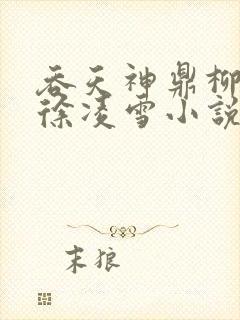 吞天神鼎柳
徐凌雪小說
末狼